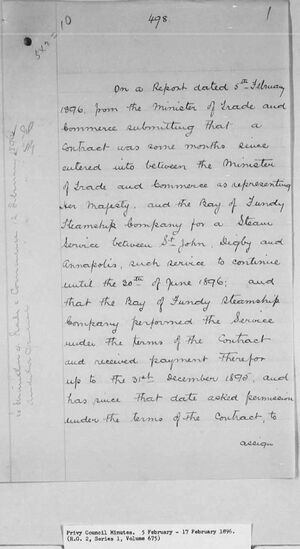 498.
1
10
On a Report dated 5th February
1896, from the Minister of Trade and
Commerce submitting that a
Contract was some months since
entered into between the Minister
of Trade and Commerce as representing
Her Majesty, and the Bay of Fundy
Steamship Company for a Steam
Service between St John, Digby and
Annapolis, such service to continue
until the 30th of June 1896; and
that the Bay of Fundy Steamship
Company performed the Service
under the terms of the Contract
and received payment therefor
up to the 31st December 1895, and
has since that date asked permission
under the terms of the Contract, to
assign
Privy Council Minutes. 5 February - 17 February 1896.
(R.G. 2, Series 1, Volume 675)